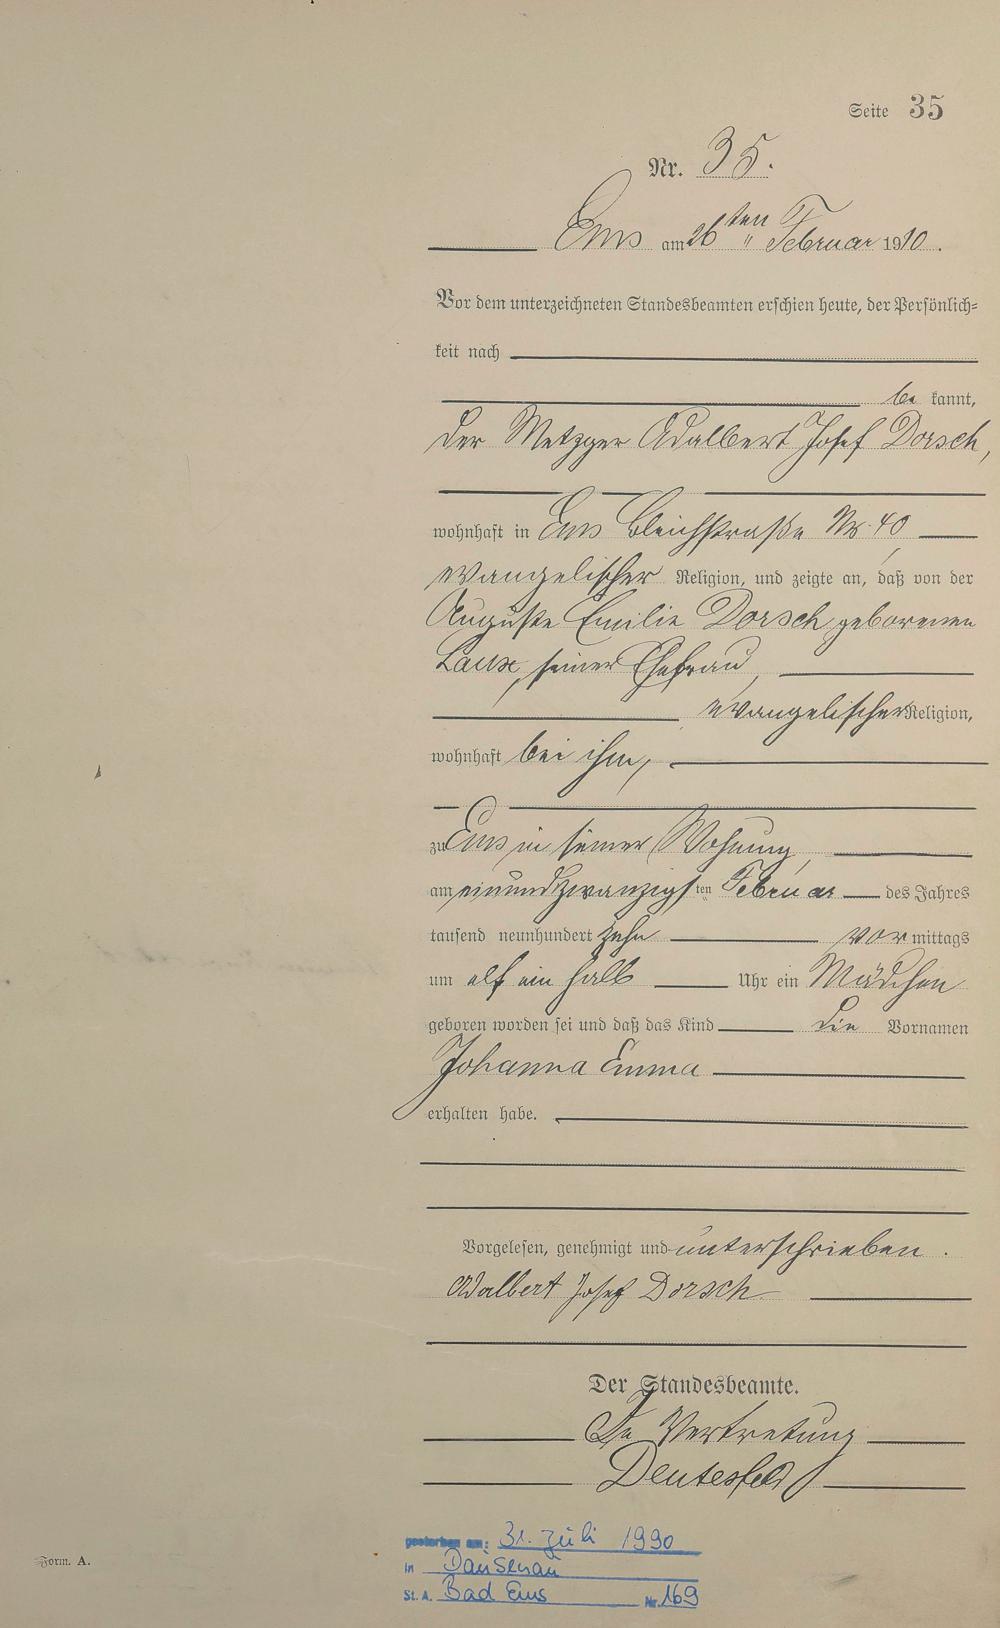 Seite 35
Nr. 35.
Ems am 26ten Februar 1910.
Vor dem unterzeichneten Standesbeamten erschien heute, der Persönlich=
keit nach
be kannt,
der Metzger Adalbert Josef Dorsch,
wohnhaft in Ems Bleichstraße Nr. 40
evangelischer Religion, und zeigte an, daß von der
Auguste Emilie Dorsch geborenen
Laux, seiner Ehefrau,
evangelischer Religion,
wohnhaft bei ihm,
zu Ems in seiner Wohnung,
am einundzwanzigsten Februar des Jahres
tausend neunhundert zehn vor mittags
um elf ein halb Uhr ein Mädchen
geboren worden sei und daß das Kind die Vornamen
Johanna Emma
erhalten habe.
Vorgelesen, genehmigt und unterschrieben.
Adalbert Josef Dorsch
Der Standesbeamte.
In Vertretung
Deutesfeld
gestorben am: 31. Juli 1990
in Dausenau
St. A. Bad Ems Nr. 169
Form. A.